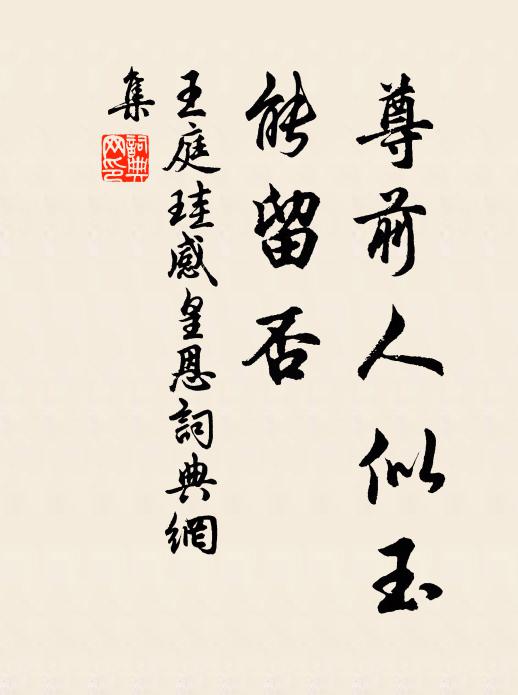 尊前人似玉
能留否
王庭珪感皇恩詞典網
集
詞典網印